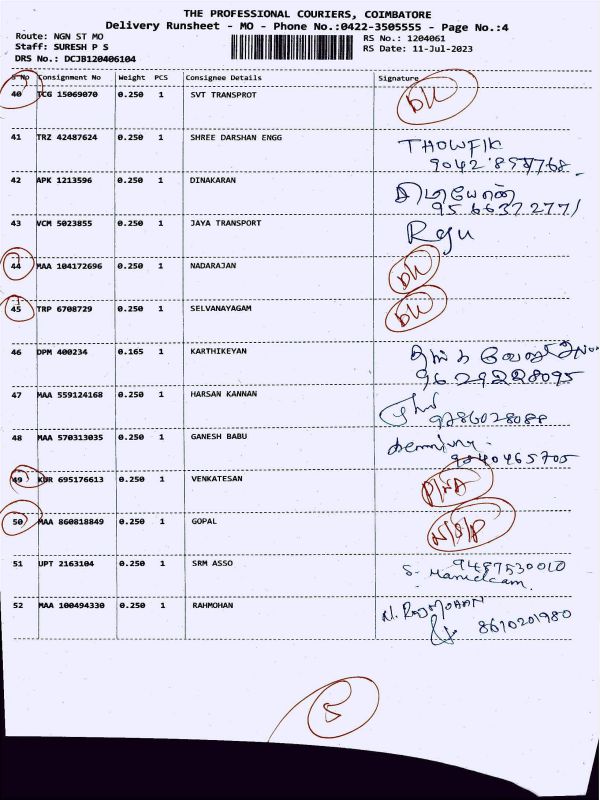 THE PROFESSIONAL COURIERS, COIMBATORE
Delivery Runsheet - MO - Phone No.:0422-3505555 - Page No.:4
Route: NGN ST MO RS No.: 1204061
Staff: SURESH P S RS Date: 11-Jul-2023
DRS No.: DCJB120406104
S No Consignment No Weight PCS Consignee Details Signature
40 TCG 15069070 0.250 1 SVT TRANSPROT DL
41 TRZ 42487624 0.250 1 SHREE DARSHAN ENGG THOWFIK
42 APK 1213596 0.250 1 DINAKARAN
9566372771
43 VCM 5023855 0.250 1 JAYA TRANSPORT
44 MAA 104172696 0.250 1 NADARAJAN DL
45 TRP 6708729 0.250 1 SELVANAYAGAM DL
46 DPM 400234 0.165 1 KARTHIKEYAN
9629228095
47 MAA 559124168 0.250 1 HARSAN KANNAN
9786028088
48 MAA 570313035 0.250 1 GANESH BABU
9840465705
49 KUR 695176613 0.250 1 VENKATESAN P/NA
50 MAA 860818849 0.250 1 GOPAL N/S/P
51 UPT 2163104 0.250 1 SRM ASSO 9487530010
S. Manickam
52 MAA 100494330 0.250 1 RAHMOHAN N. RAJMOHAN
8610201980
5